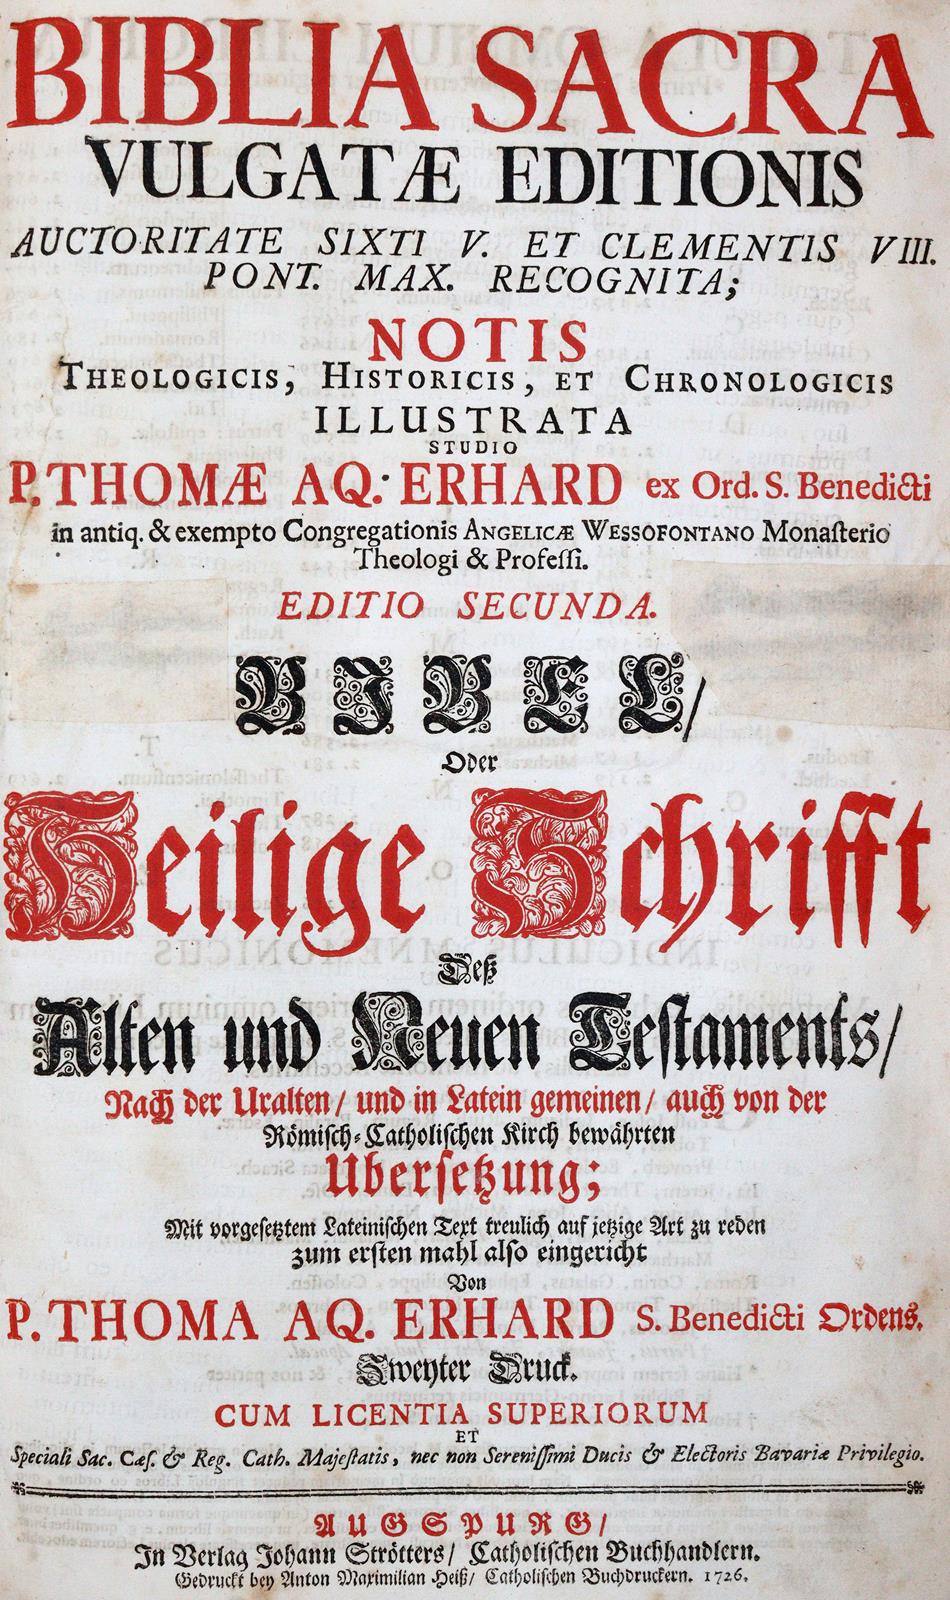 BIBLIA SACRA
VULGATÆ EDITIONIS
AUCTORITATE SIXTI V. ET CLEMENTIS VIII.
PONT. MAX. RECOGNITA;
NOTIS
THEOLOGICIS, HISTORICIS, ET CHRONOLOGICIS
ILLUSTRATA
STUDIO
P. THOMÆ AQ. ERHARD ex Ord. S. Benedicti
in antiq. & exempto Congregationis ANGELICÆ WESSOFONTANO Monaſterio
Theologi & Profeſſi.
EDITIO SECUNDA.
BIBEL/
Oder
Heilige Schrifft
Deß
Alten und Neuen Teſtaments/
Nach der Uralten/ und in Latein gemeinen/ auch von der
Römiſch-Catholiſchen Kirch bewährten
Uberſetzung;
Mit vorgeſetztem Lateiniſchen Text treulich auf jetzige Art zu reden
zum erſten mahl alſo eingericht
Von
P. THOMA AQ. ERHARD S. Benedicti Ordens.
Zweyter Druck.
CUM LICENTIA SUPERIORUM
ET
Speciali Sac. Cæſ. & Reg. Cath. Majeſtatis, nec non Sereniſſimi Ducis & Electoris Bavariæ Privilegio.
AUGSPURG/
In Verlag Johann Strötters/ Catholiſchen Buchhandlern.
Gedruckt bey Anton Maximilian Heiß/ Catholiſchen Buchdruckern. 1726.